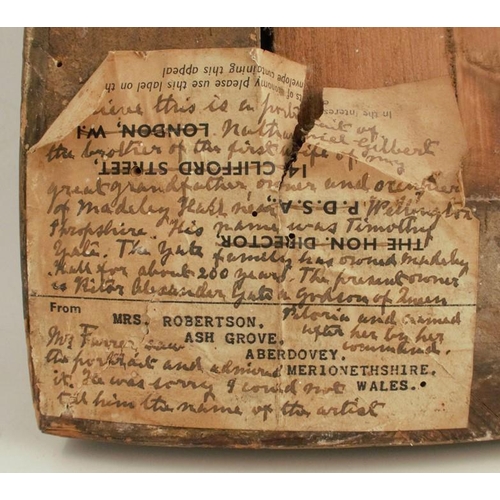 In the interests of economy please use this label on the
envelope containing this appeal
THE HON. DIRECTOR,
P.D.S.A.,
14, CLIFFORD STREET,
LONDON, W.1
this is a portrait of
Nathaniel Gilbert
the brother of the first wife of my
great grandfather, owner and
of Madeley Hall near Wellington
Shropshire. His name was Timothy
Yate. The Yate family has owned Madeley
Hall for about 200 years. The present owner
is Victor Alexander Yate a Godson of Queen
Victoria and named
after her by her
command.
From
MRS. ROBERTSON.
ASH GROVE.
ABERDOVEY.
MERIONETHSHIRE.
WALES.
Mr saw
the portrait and admired
it. He was sorry I could not
tell him the name of the artist